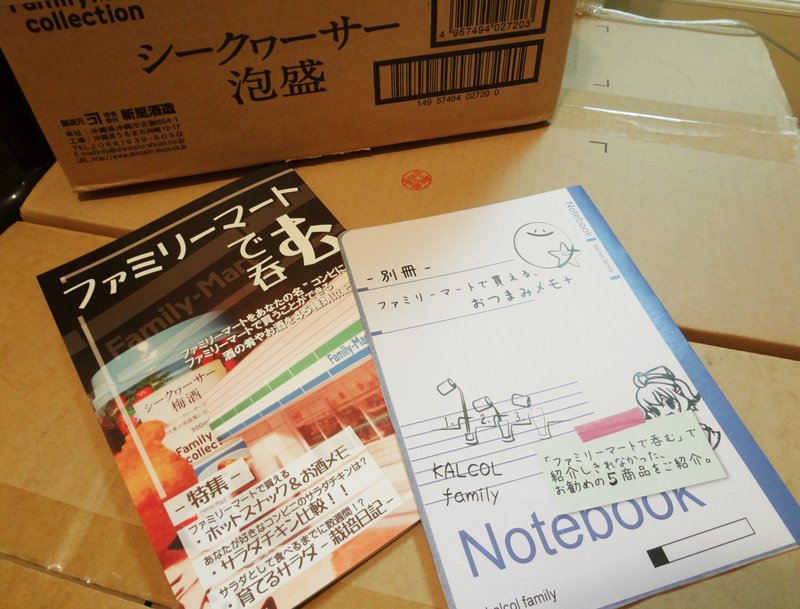 collection
シークヮーサー
泡盛
4 957494 027203
149 57494 02720 0
製造元 合名会社 新里酒造
本社：沖縄県沖縄市古謝864-1
工場：沖縄県うるま市州崎12-17
TEL(098)939-5050
ファミリーマート
で呑む
Family-Mart
ファミリーマートをあなたの名"コンビに
ファミリーマートで買うことができる
酒の肴やお酒を45種類以上
Family-Mart
シークヮーサー
梅酒
300ml
Family
collection
-特集-
ファミリーマートで買える
・ホットスナック&お酒メモ
あなたが好きなコンビニのサラダチキンは？
・サラダチキン比較！！
サラダとして食べるまでに数週間！？
・育てるサラダ -栽培日記-
Notebook
kalcol family
-別冊-
ファミリーマートで買える、
おつまみメモ+
1. 2. 3.
KALCOL
family
「ファミリーマートで呑む」で
紹介しきれなかった、
お勧めの5商品をご紹介。
Notebook
kalcol family